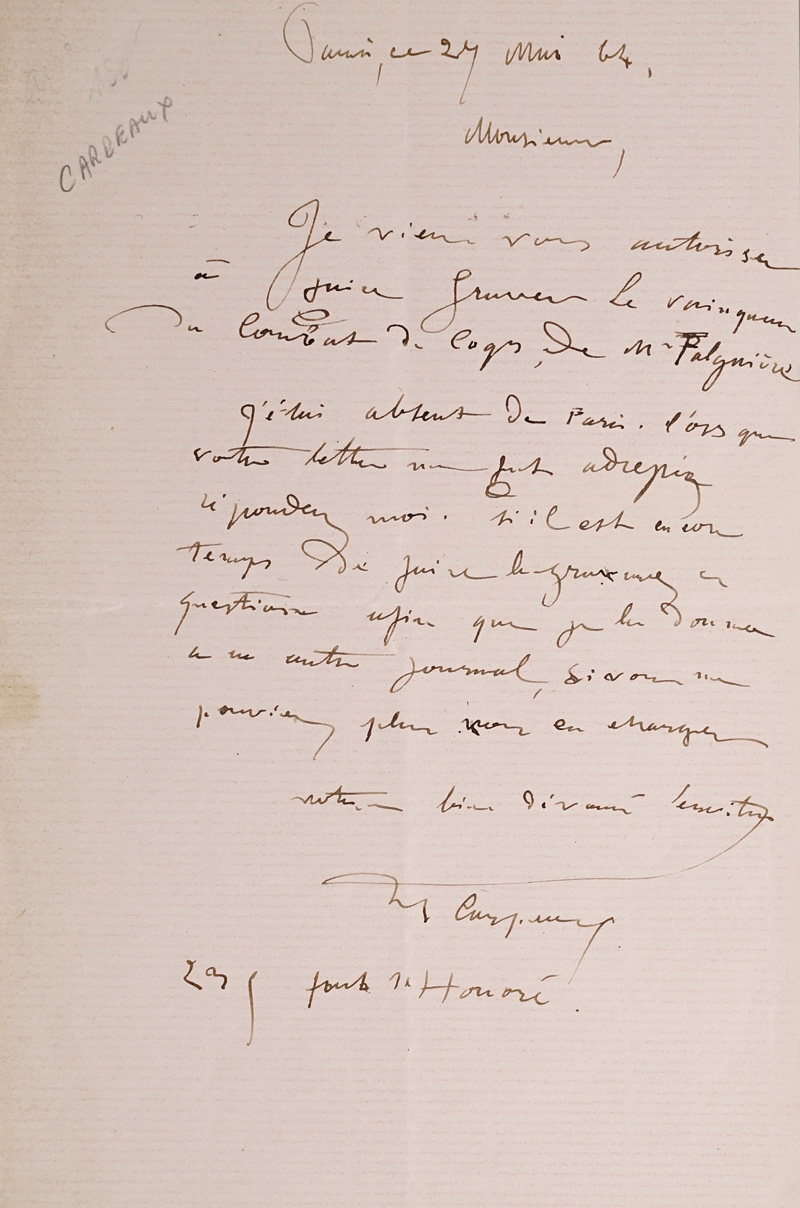 CARPEAUX
Paris, ce 27 Mai 64,
Monsieur,
Je viens vous autoriser
à faire graver le vainqueur
du Combat de Coqs, de Mr Falguière
j'étais absent de Paris. l'orsque
votre lettre me fut adressée
répondez moi. si il est encore
temps de faire la gravure en
question afin que je la donne
a un autre journal, si vous ne
pouviez plus vous en charger
votre bien dévoué serviteur
Bte Carpeaux
faub St Honoré.